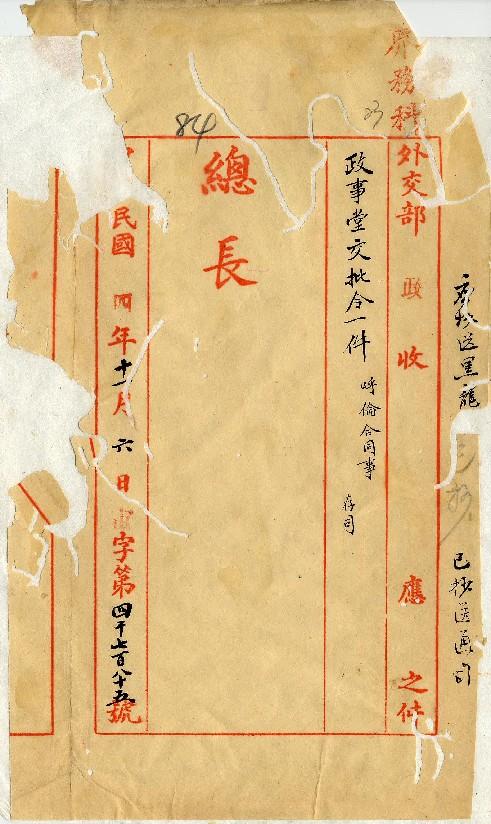 界務科
已抄送通商
外交部 政 收 應 之件
政事堂交批令一件 呼倫合同事 存司
84
總長
民國四年十一月六日 字第四千七百八十五號